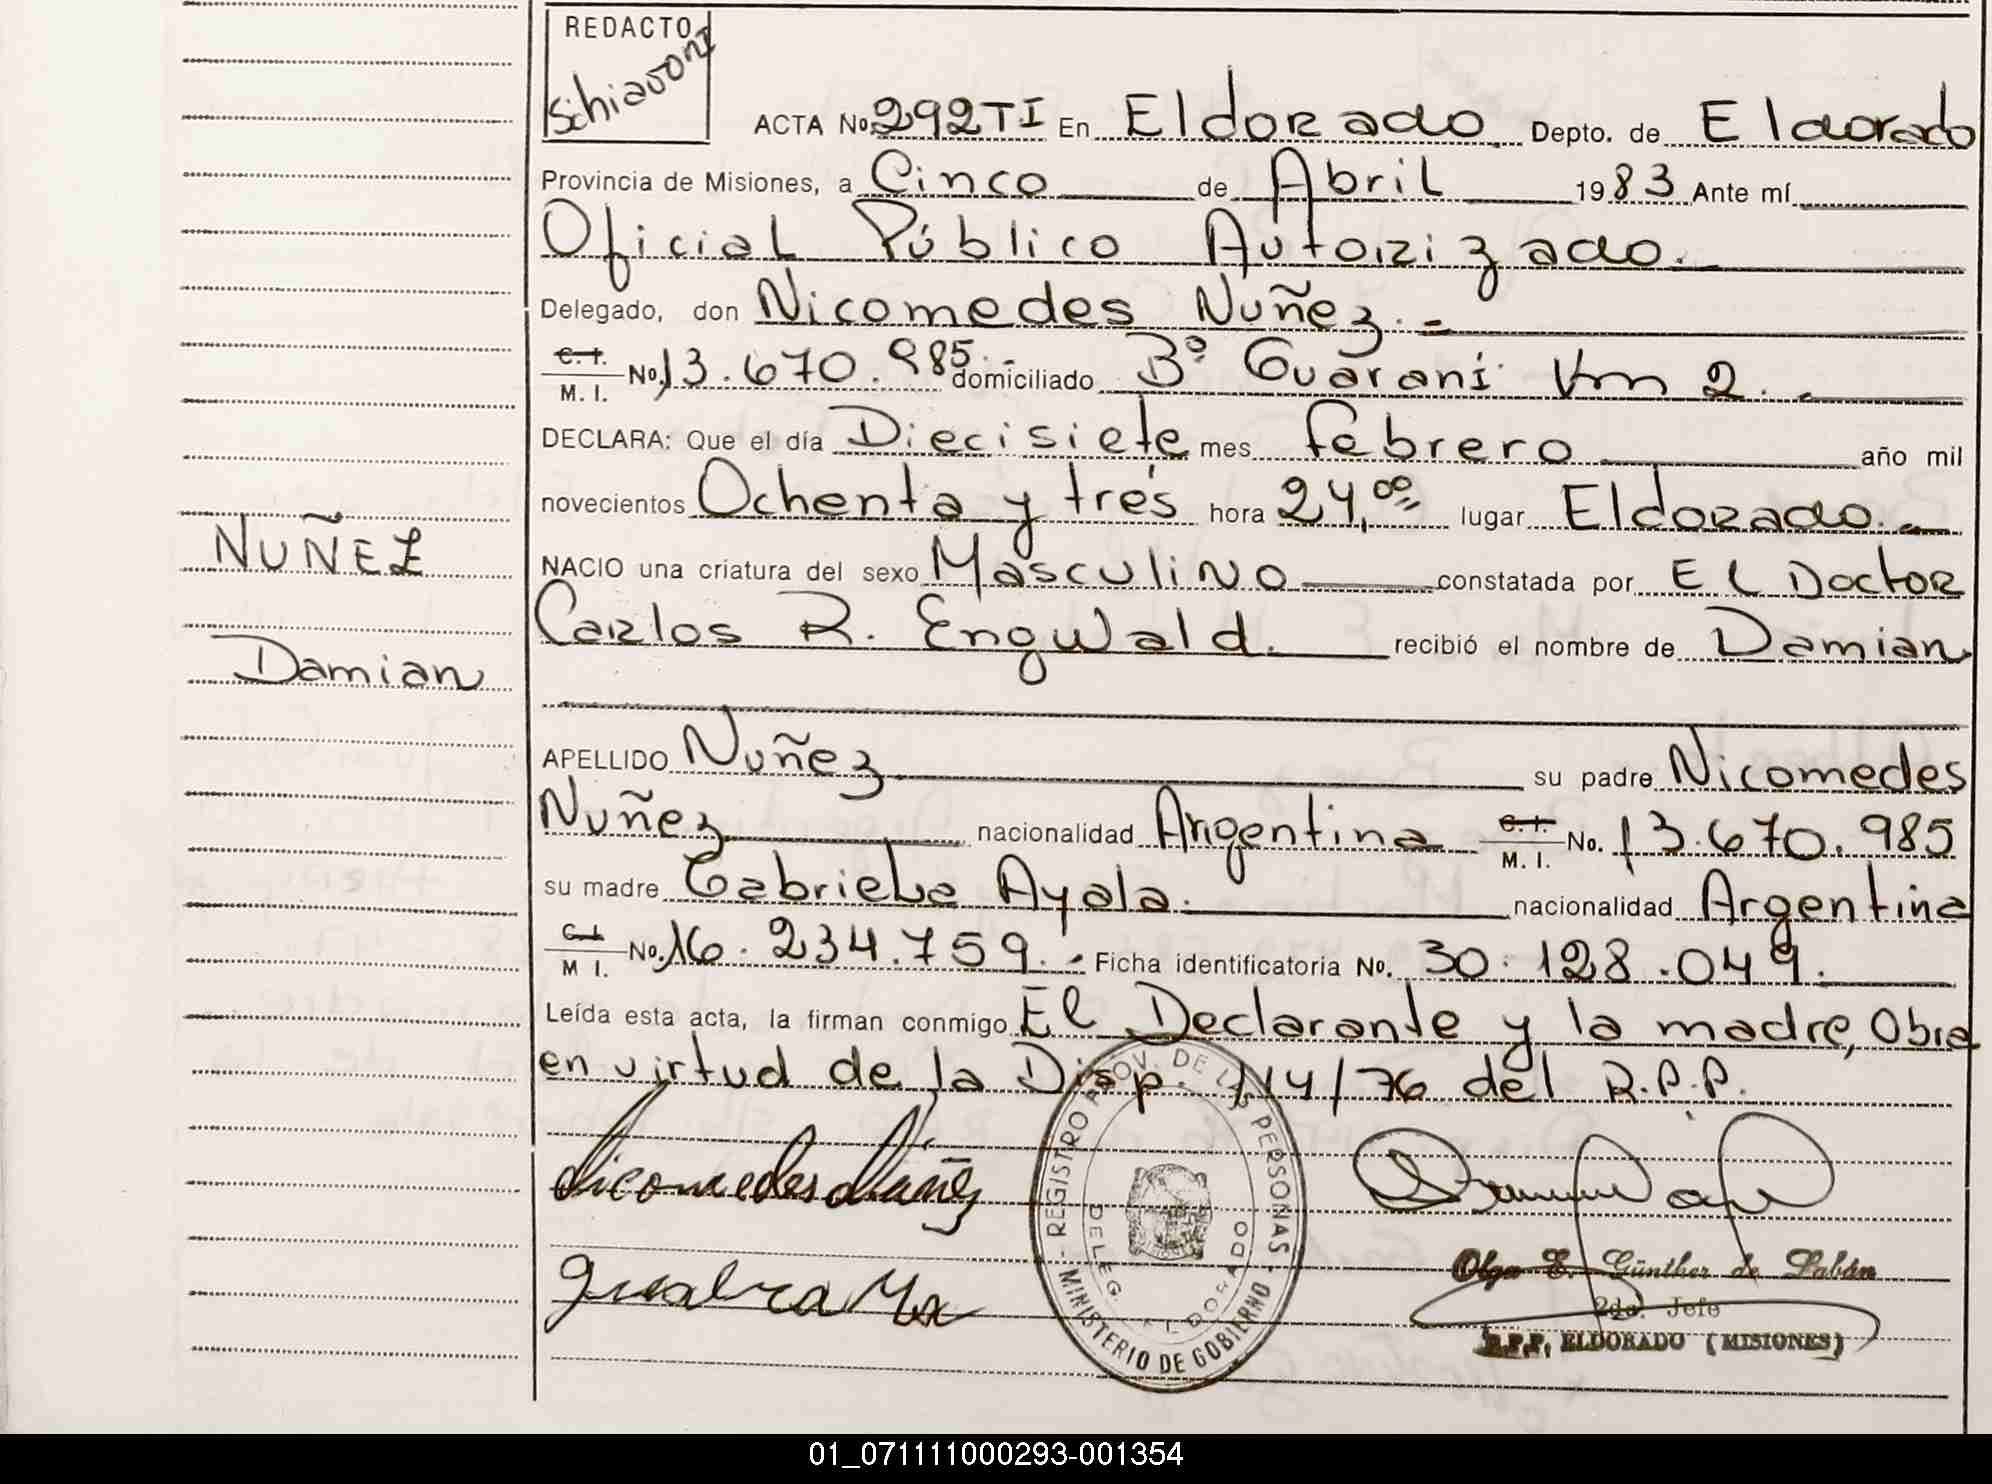 REDACTO
Schiavoni
ACTA No. 292TI En Eldorado. Depto. de Eldorado
Provincia de Misiones, a Cinco de Abril 1983 Ante mí
Oficial Público Autorizado.
Delegado, don Nicomedes Nuñez. =
C. I. M. I. No. 13.670.985.- domiciliado Bº Guaraní Km 2. -
DECLARA: Que el día Diecisiete mes febrero año mil
novecientos Ochenta y trés hora 24,00 lugar Eldorado. -
NUÑEZ
NACIO una criatura del sexo Masculino constatada por El Doctor
Carlos R. Engwald. recibió el nombre de Damian
Damian
APELLIDO Nuñez su padre Nicomedes
Nuñez nacionalidad Argentina C. I. M. I. No. 13.670.985
su madre Gabriela Ayala. nacionalidad Argentina
C. I. M I. No. 16.234.759. - Ficha identificatoria No. 30.128.049.
Leída esta acta, la firman conmigo El Declarante y la madre, Obra
en virtud de la Disp. 114/76 del R.P.P.
REGISTRO PROV. DE LAS PERSONAS
DELEG. ELDORADO
MINISTERIO DE GOBIERNO
Nicomedes Núñez
Olga E. Günther de Labán
2do. Jefe
R.P.P. ELDORADO (MISIONES)
01_071111000293-001354